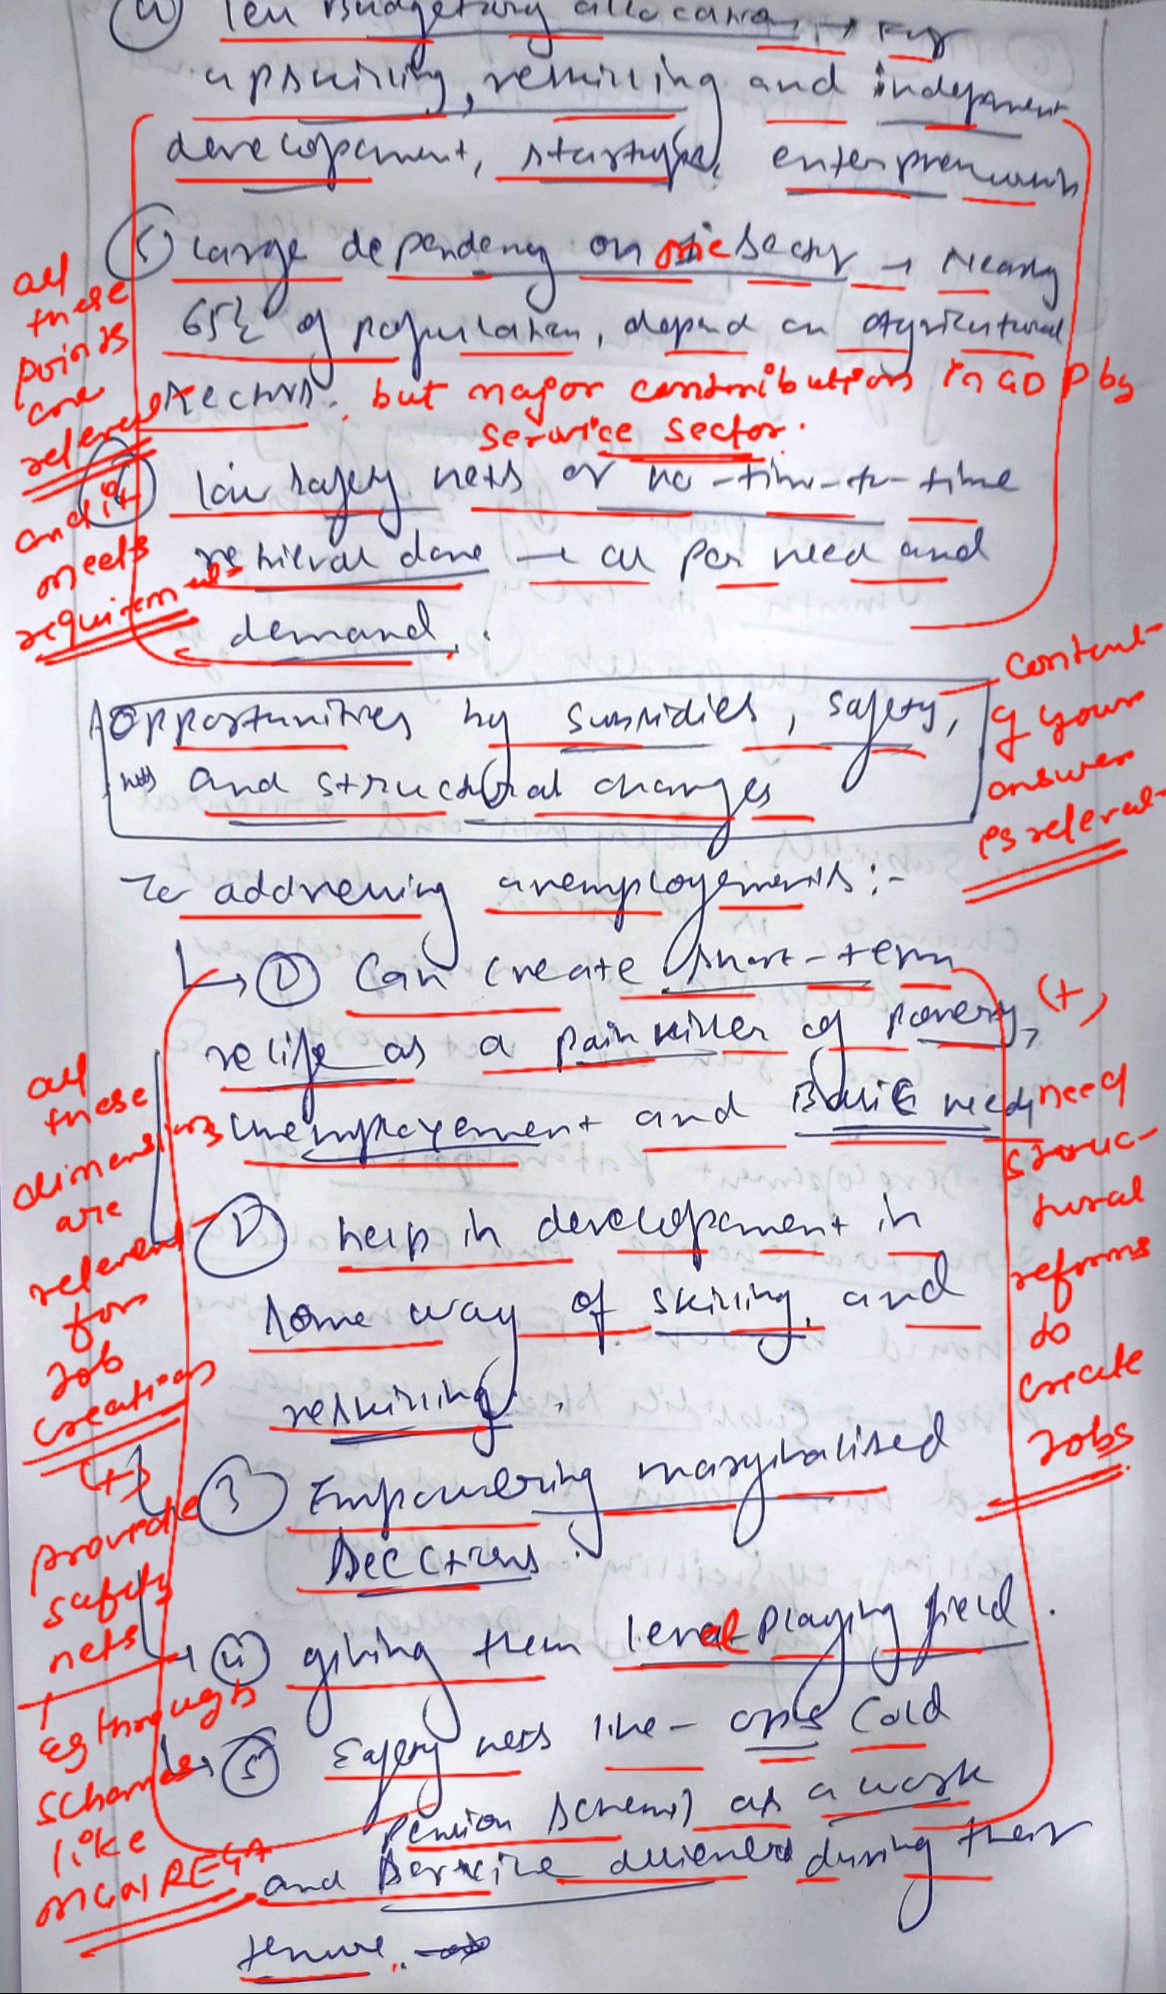 (4) less Budgetary allocation → For
upskilling, reskilling and independent
development, startups, enterpreneurs
(5) large dependency on one sector → Nearly
65% of population, depend on Agricultural
sectors. but major contributions in GDP by
service sector.
all these points are relevant and it meets requirements
low safety nets or no-time-to-time
retrieval done → as per need and
demand.
Opportunities by subsidies, safety,
nets and structural changes
content of your answer is relevant
To addressing unemployements:-
→ (1) Can create short-term
relife as a pain killer of poverty,
unemployement and Basic needs
(+) need structural reforms to create Jobs
all these dimensions are relevant for Job creations
(2) help in development in
some way of skilling, and
reskilling.
(3) Empowering marginalised
sections.
(+) provide safety nets
(4) giving them level playing field.
(5) Safety nets like - OPS (old
Pension Scheme) as a work
and service during their
tenure.
Eg through schemes like MGNREGA